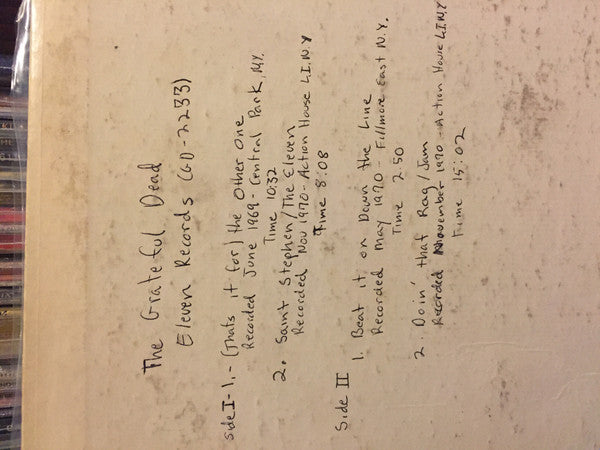 The Grateful Dead
Eleven Records (GD-2233)
side I-1.- (Thats it for) the Other One
Recorded June 1969-Central Park, N.Y.
Time 10:32
2. Saint Stephen/The Eleven
Recorded Nov 1970-Action House L.I.N.Y
Time 8:08
Side II
1. Beat it on Down the Line
Recorded May 1970 - Fillmore East N.Y.
Time 2:50
2. Doin' that Rag/Jam
Recorded November 1970-Action House L.I.N.Y
Time 15:02